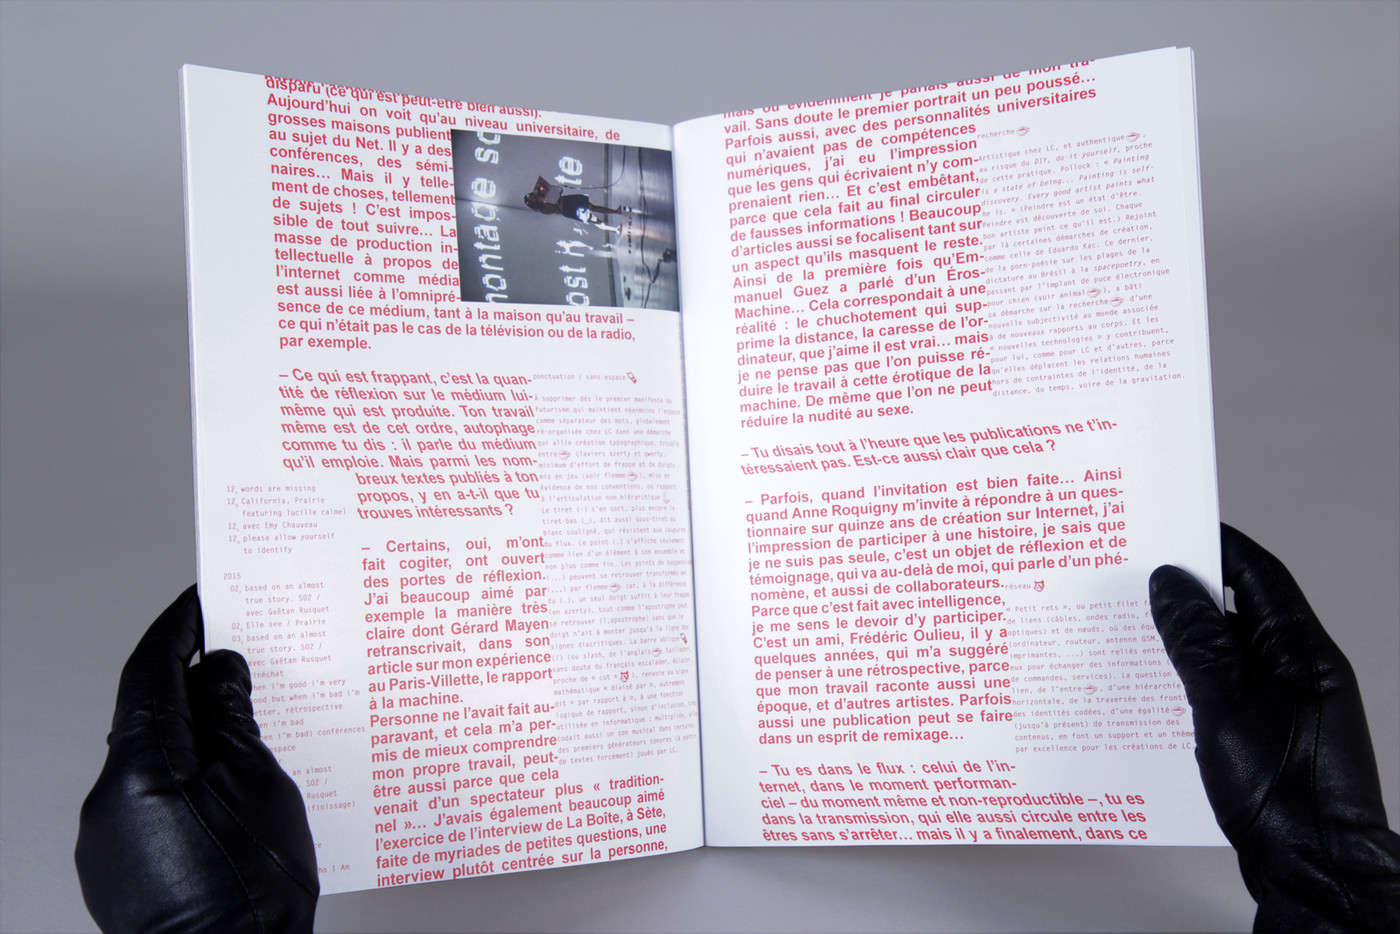 disparu (ce qui est peut-être bien aussi).
Aujourd'hui on voit qu'au niveau universitaire, de
grosses maisons publient
au sujet du Net. Il y a des
conférences, des sémi-
naires… Mais il y telle-
ment de choses, tellement
de sujets ! C'est impos-
sible de tout suivre… La
masse de production in-
tellectuelle à propos de
l'internet comme média
est aussi liée à l'omnipré-
sence de ce médium, tant à la maison qu'au travail –
ce qui n'était pas le cas de la télévision ou de la radio,
par exemple.
montage
– Ce qui est frappant, c'est la quan-
tité de réflexion sur le médium lui-
même qui est produite. Ton travail
même est de cet ordre, autophage
comme tu dis : il parle du médium
qu'il emploie. Mais parmi les nom-
breux textes publiés à ton
propos, y en a-t-il que tu
trouves intéressants ?
– Certains, oui, m'ont
fait cogiter, ont ouvert
des portes de réflexion.
J'ai beaucoup aimé par
exemple la manière très
claire dont Gérard Mayen
retranscrivait, dans son
article sur mon expérience
au Paris-Villette, le rapport
à la machine.
Personne ne l'avait fait au-
paravant, et cela m'a per-
mis de mieux comprendre
mon propre travail, peut-
être aussi parce que cela
venait d'un spectateur plus « tradition-
nel »… J'avais également beaucoup aimé
l'exercice de l'interview de La Boîte, à Sète,
faite de myriades de petites questions, une
interview plutôt centrée sur la personne,
12_ words are missing
12_ California, Prairie
featuring lucille calmel
12_ avec Emy Chauveau
12_ please allow yourself
to identify
2015
02_ based on an almost
true story. S02 /
avec Gaëtan Rusquet
02_ Elle see / Prairie
03_ based on an almost
true story. S02 /
avec Gaëtan Rusquet
cinéchat
when i'm good i'm very
good but when i'm bad i'm
better, rétrospective
when i'm bad
(when i'm bad) conférences
an almost
S02 /
Rusquet
(finissage)
Who I Am
ponctuation / sans espace
À supprimer dès le premier manifeste du
futurisme qui maintient néanmoins l'espace
comme séparateur des mots, globalement
ré-organisée chez LC dans une démarche
qui allie création typographique, trouble
entre claviers azerty et qwerty,
minimum d'effort de frappe et de doigts
mis en jeu (voir flemme), mise en
évidence de nos conventions, ou rapport
à l'articulation non hiérarchique
Le tiret (-) s'en sort, plus encore le
tiret-bas (_), dit aussi sous-tiret ou
blanc souligné, qui résistent aux coupures
du flux. Le point (.) s'affiche seulement
comme lien d'un élément à son ensemble et
non plus comme fin. Les points de suspension
(...) peuvent se retrouver transformés en
(,,,) par flemme car, à la différence
du (.), un seul doigt suffit à leur frappe
(en azerty), tout comme l'apostrophe peut
se retrouver (l,apostrophe) sans que le
doigt n'ait à monter jusqu'à la ligne des
signes diacritiques. La barre oblique
(/) (ou slash, de l'anglais taillader,
sans doute du français escalader, dilater,
proche de « cut » ), renvoie au signe
mathématique « divisé par », autrement
dit « par rapport à », à une fonction
logique de rapport, sinon d'inclusion, trop
utilisée en informatique : multipliée, elle
codait aussi un son musical dans certains
des premiers générateurs sonores (à partir
de textes forcément) joués par LC.
mais où évidemment je parlais aussi de mon tra-
vail. Sans doute le premier portrait un peu poussé…
Parfois aussi, avec des personnalités universitaires
qui n'avaient pas de compétences
numériques, j'ai eu l'impression
que les gens qui écrivaient n'y com-
prenaient rien… Et c'est embêtant,
parce que cela fait au final circuler
de fausses informations ! Beaucoup
d'articles aussi se focalisent tant sur
un aspect qu'ils masquent le reste.
Ainsi de la première fois qu'Em-
manuel Guez a parlé d'un Éros-
Machine… Cela correspondait à une
réalité : le chuchotement qui sup-
prime la distance, la caresse de l'or-
dinateur, que j'aime il est vrai… mais
je ne pense pas que l'on puisse ré-
duire le travail à cette érotique de la
machine. De même que l'on ne peut
réduire la nudité au sexe.
recherche
Artistique chez LC, et authentique ,
au risque du DIY, do it yourself, proche
de cette pratique. Pollock : « Painting
is a state of being... Painting is self-
discovery. Every good artist paints what
he is. » (Peindre est un état d'être.
Peindre est découverte de soi. Chaque
bon artiste peint ce qu'il est.) Rejoint
par là certaines démarches de création,
comme celle de Eduardo Kac. Ce dernier,
de la porn-poésie sur les plages de la
dictature au Brésil à la spacepoetry, en
passant par l'implant de puce électronique
pour chien (voir animal ), a bâti
sa démarche sur la recherche d'une
nouvelle subjectivité au monde associée
à de nouveaux rapports au corps. Et les
« nouvelles technologies » y contribuent,
pour lui, comme pour LC et d'autres, parce
qu'elles déplacent les relations humaines
hors de contraintes de l'identité, de la
distance, du temps, voire de la gravitation.
– Tu disais tout à l'heure que les publications ne t'in-
téressaient pas. Est-ce aussi clair que cela ?
– Parfois, quand l'invitation est bien faite… Ainsi
quand Anne Roquigny m'invite à répondre à un ques-
tionnaire sur quinze ans de création sur Internet, j'ai
l'impression de participer à une histoire, je sais que
je ne suis pas seule, c'est un objet de réflexion et de
témoignage, qui va au-delà de moi, qui parle d'un phé-
nomène, et aussi de collaborateurs.
Parce que c'est fait avec intelligence,
je me sens le devoir d'y participer.
C'est un ami, Frédéric Oulieu, il y a
quelques années, qui m'a suggéré
de penser à une rétrospective, parce
que mon travail raconte aussi une
époque, et d'autres artistes. Parfois
aussi une publication peut se faire
dans un esprit de remixage…
réseau
« Petit rets », ou petit filet f
de liens (câbles, ondes radio, f
optiques) et de nœuds, où des équ
(ordinateur, routeur, antenne GSM,
imprimantes, ...) sont reliés entre
eux pour échanger des informations (
de commandes, services). La question
lien, de l'entre , d'une hiérarchie
horizontale, de la traversée des fronti
des identités codées, d'une égalité
(jusqu'à présent) de transmission des
contenus, en font un support et un thème
par excellence pour les créations de LC.
– Tu es dans le flux : celui de l'in-
ternet, dans le moment performan-
ciel – du moment même et non-reproductible –, tu es
dans la transmission, qui elle aussi circule entre les
êtres sans s'arrêter… mais il y a finalement, dans ce